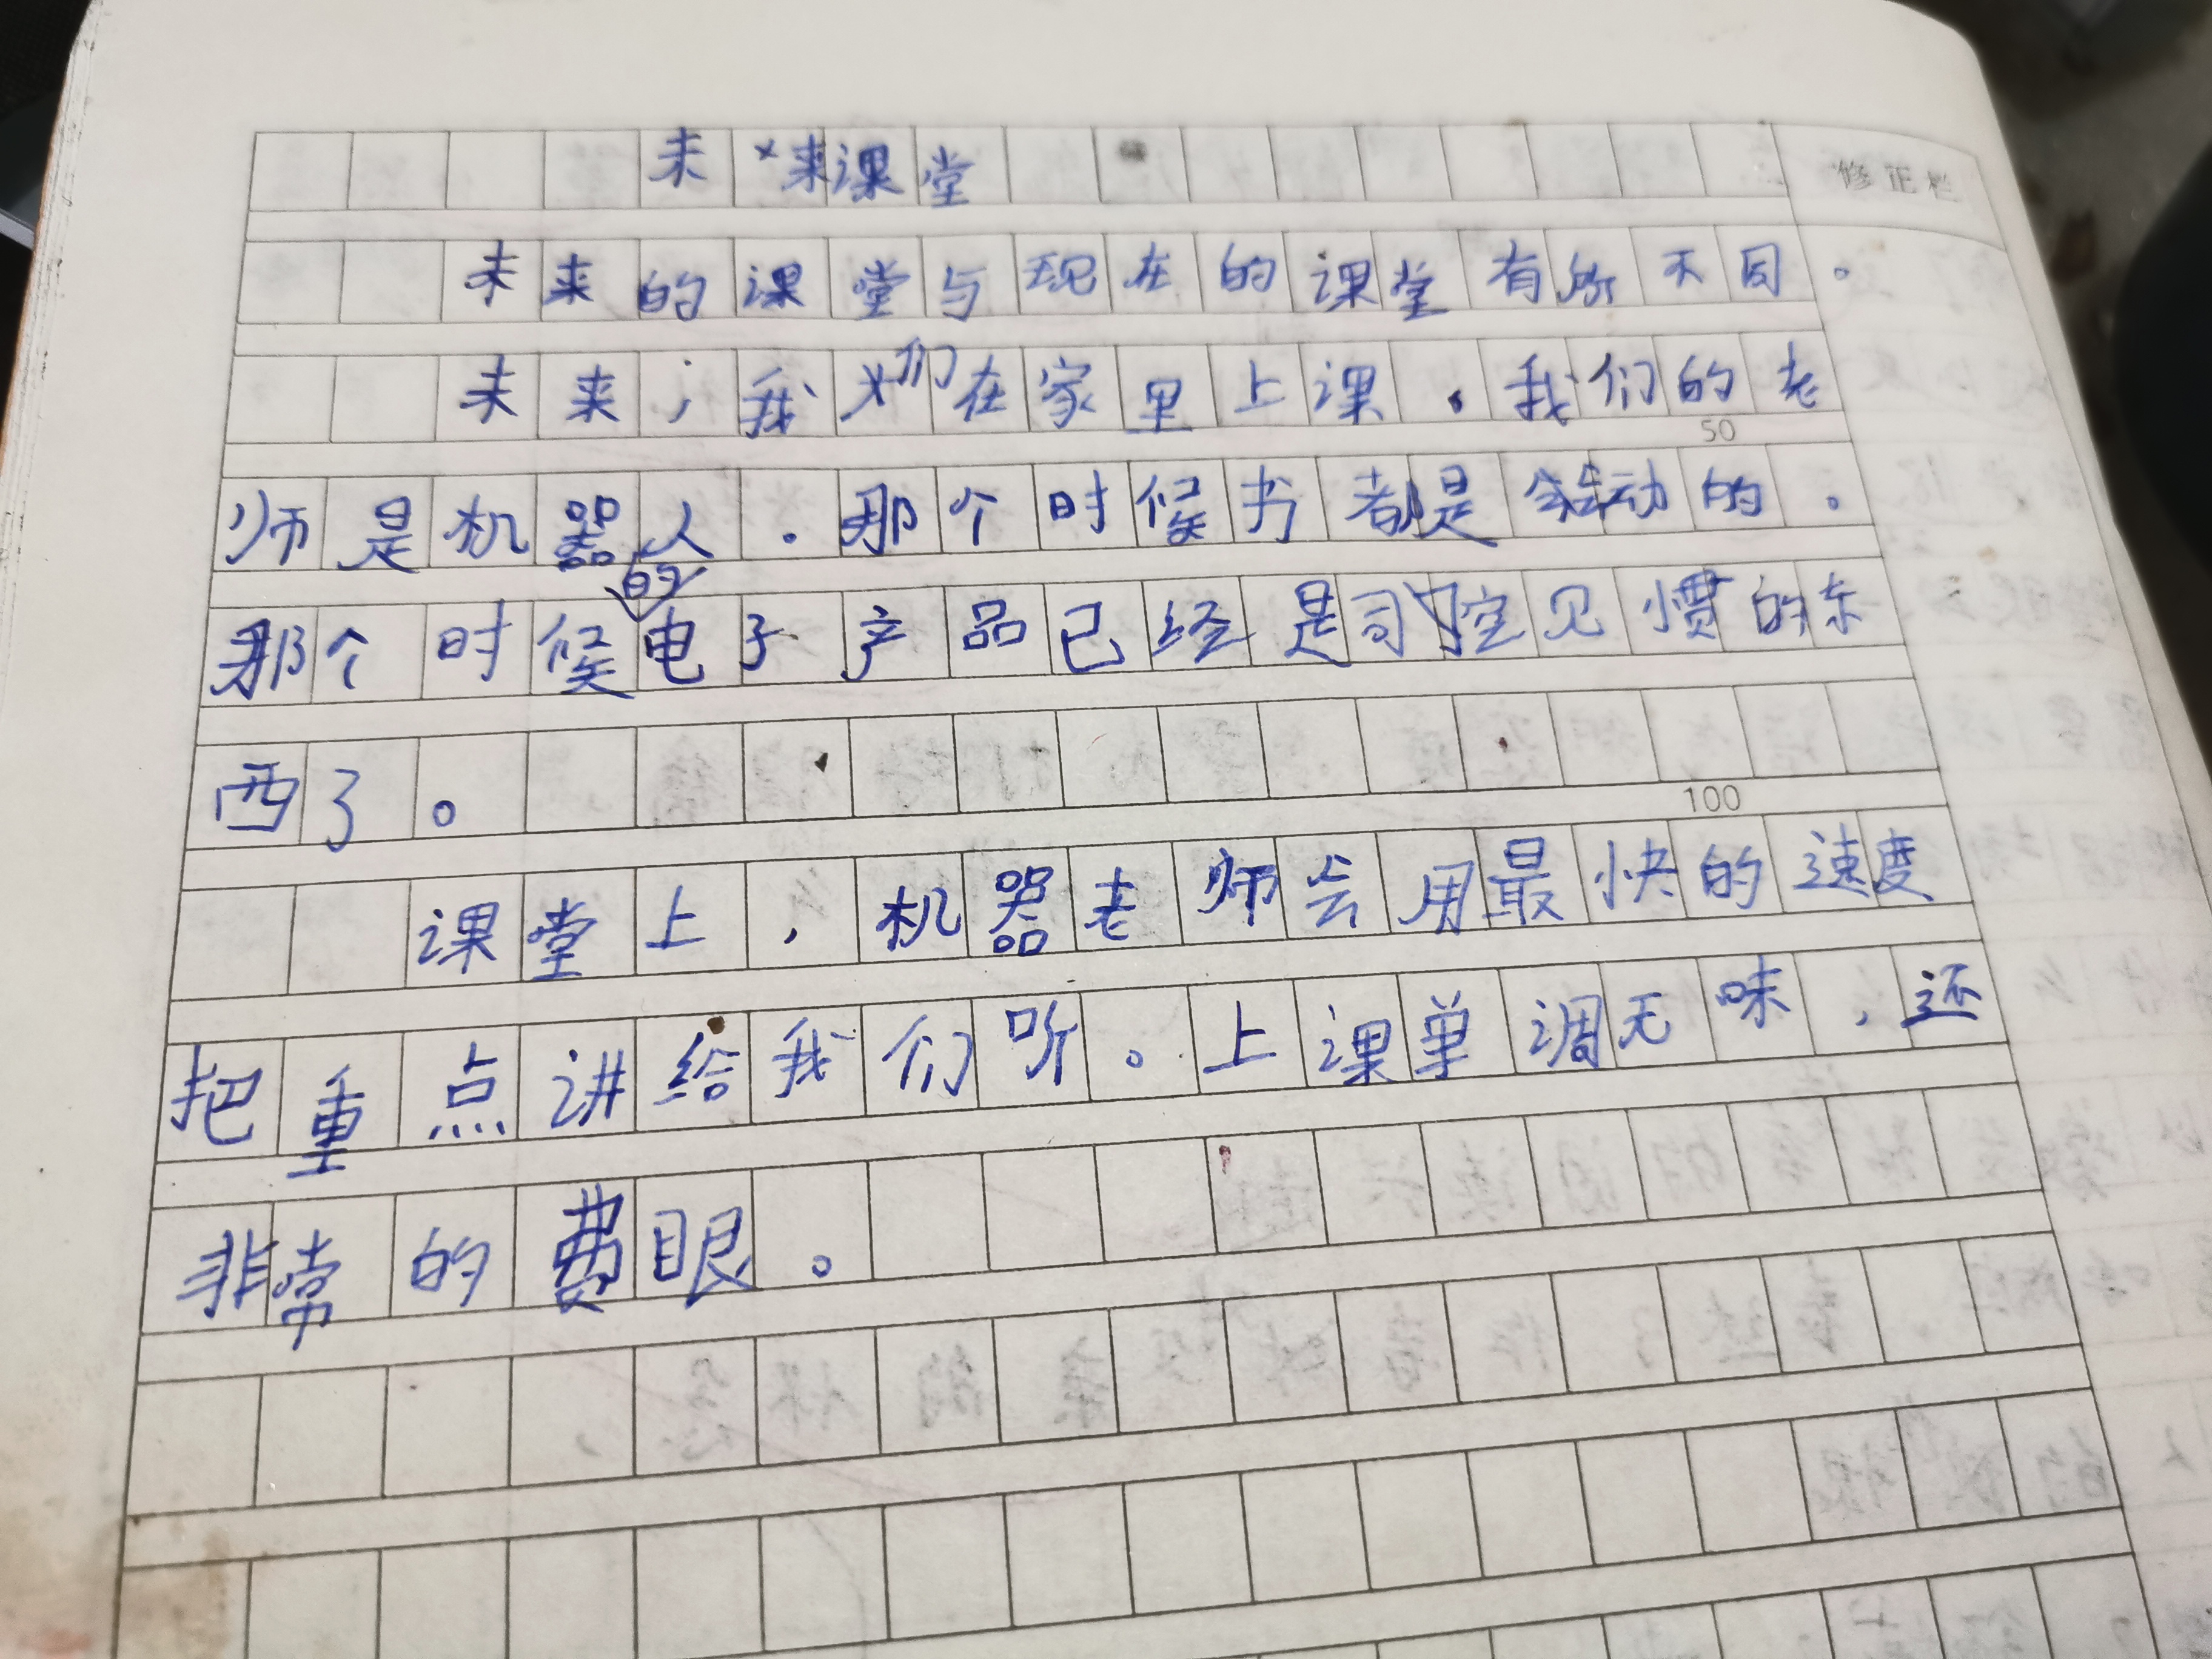 未来课堂
修正栏
未来的课堂与现在的课堂有所不同。
未来,我们在家里上课,我们的老
50
师是机器人。那个时候书都是会动的。
的
那个时候电子产品已经是司空见惯的东
西了。
100
课堂上,机器老师会用最快的速度
把重点讲给我们听。上课单调无味,还
非常的费眼。